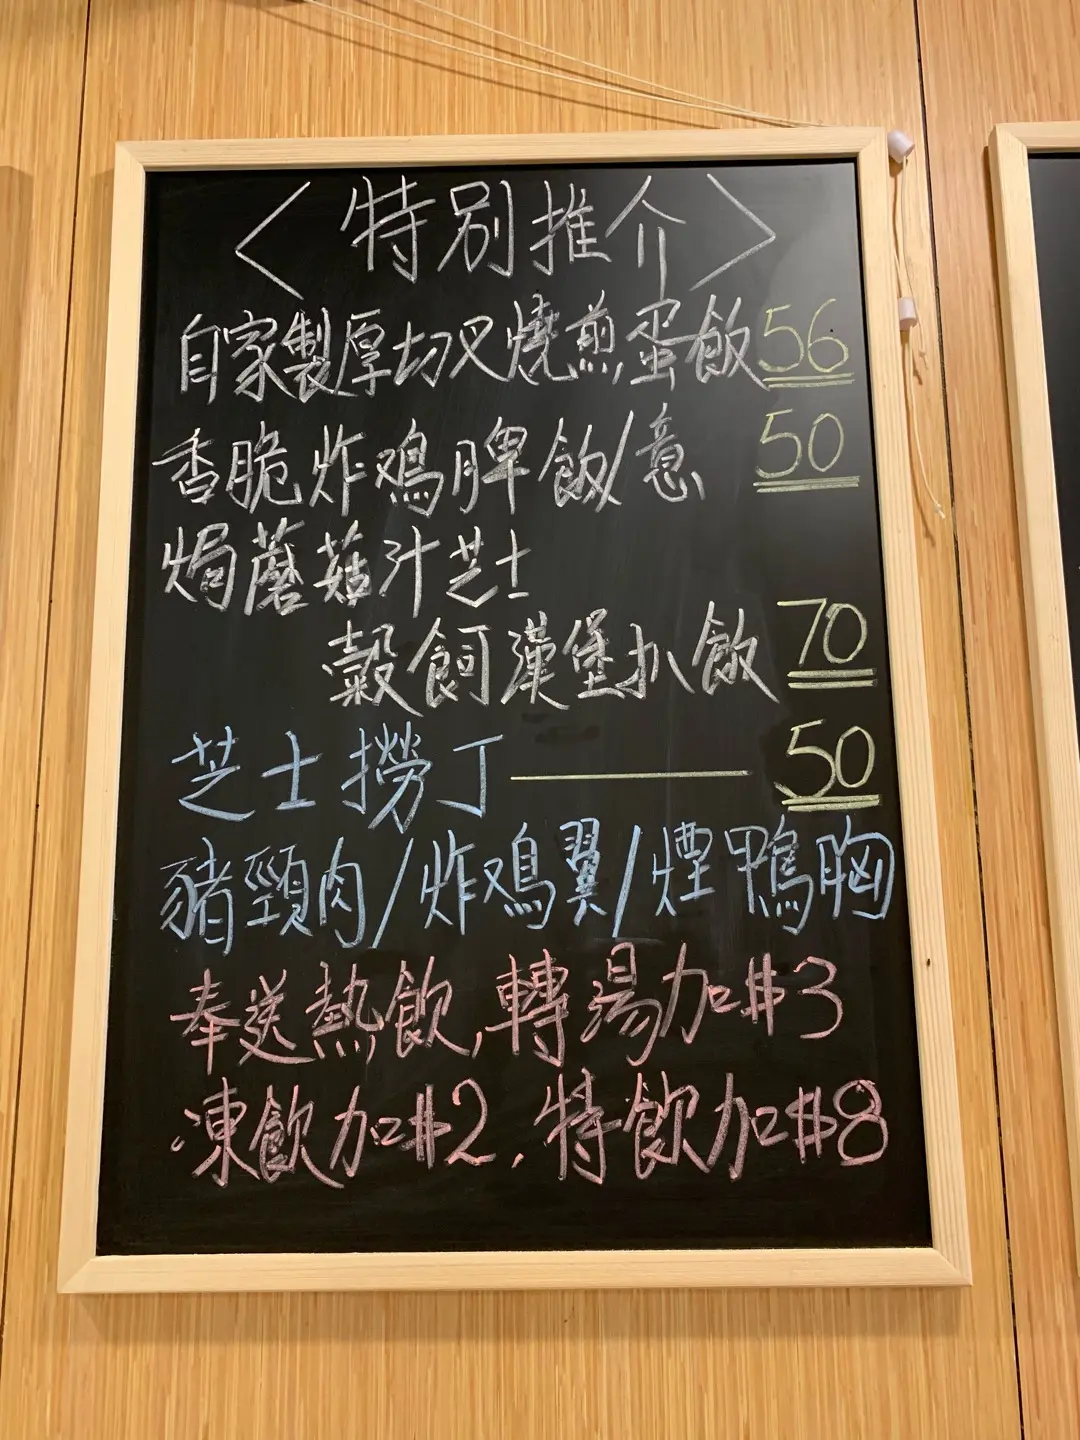 〈特別推介〉
自家製厚切叉燒煎蛋飯 56
香脆炸鸡脾飯/意 50
焗蘑菇汁芝士
穀飼漢堡扒飯 70
芝士撈丁——— 50
豬頸肉/炸鸡翼/煙鴨胸
奉送熱飲,轉湯加$3
凍飲加$2,特飲加$8